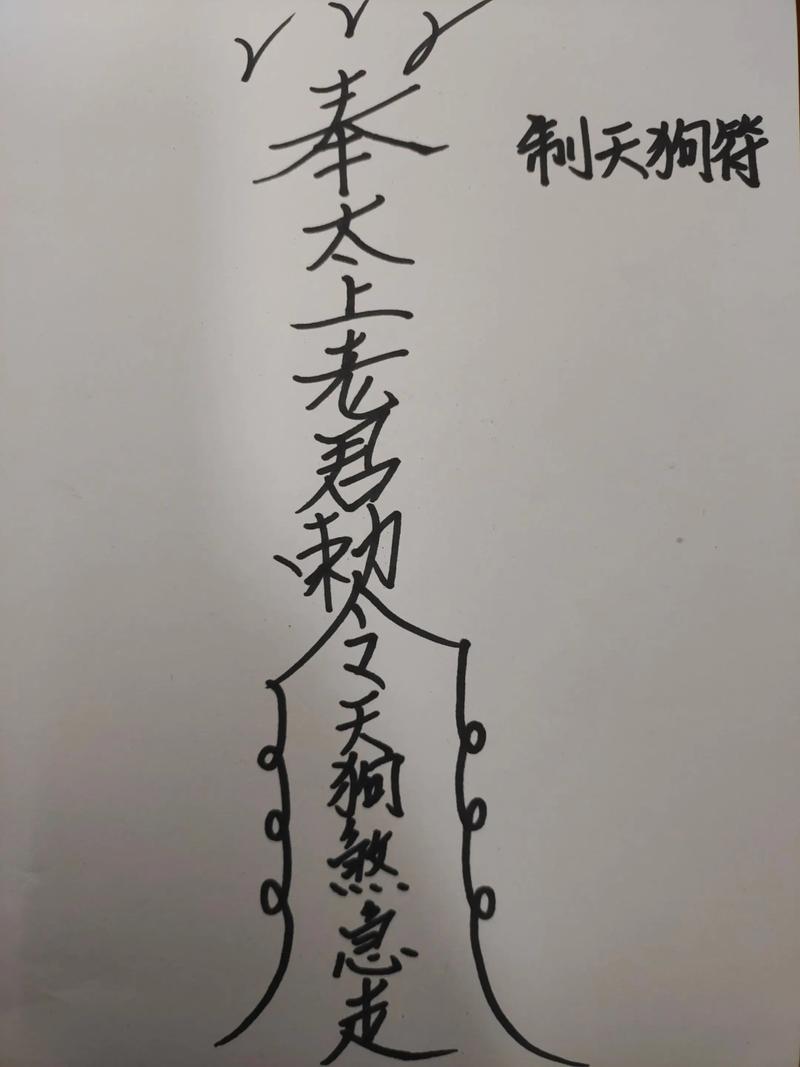 奉太上老君勅令天狗煞急走
制天狗符